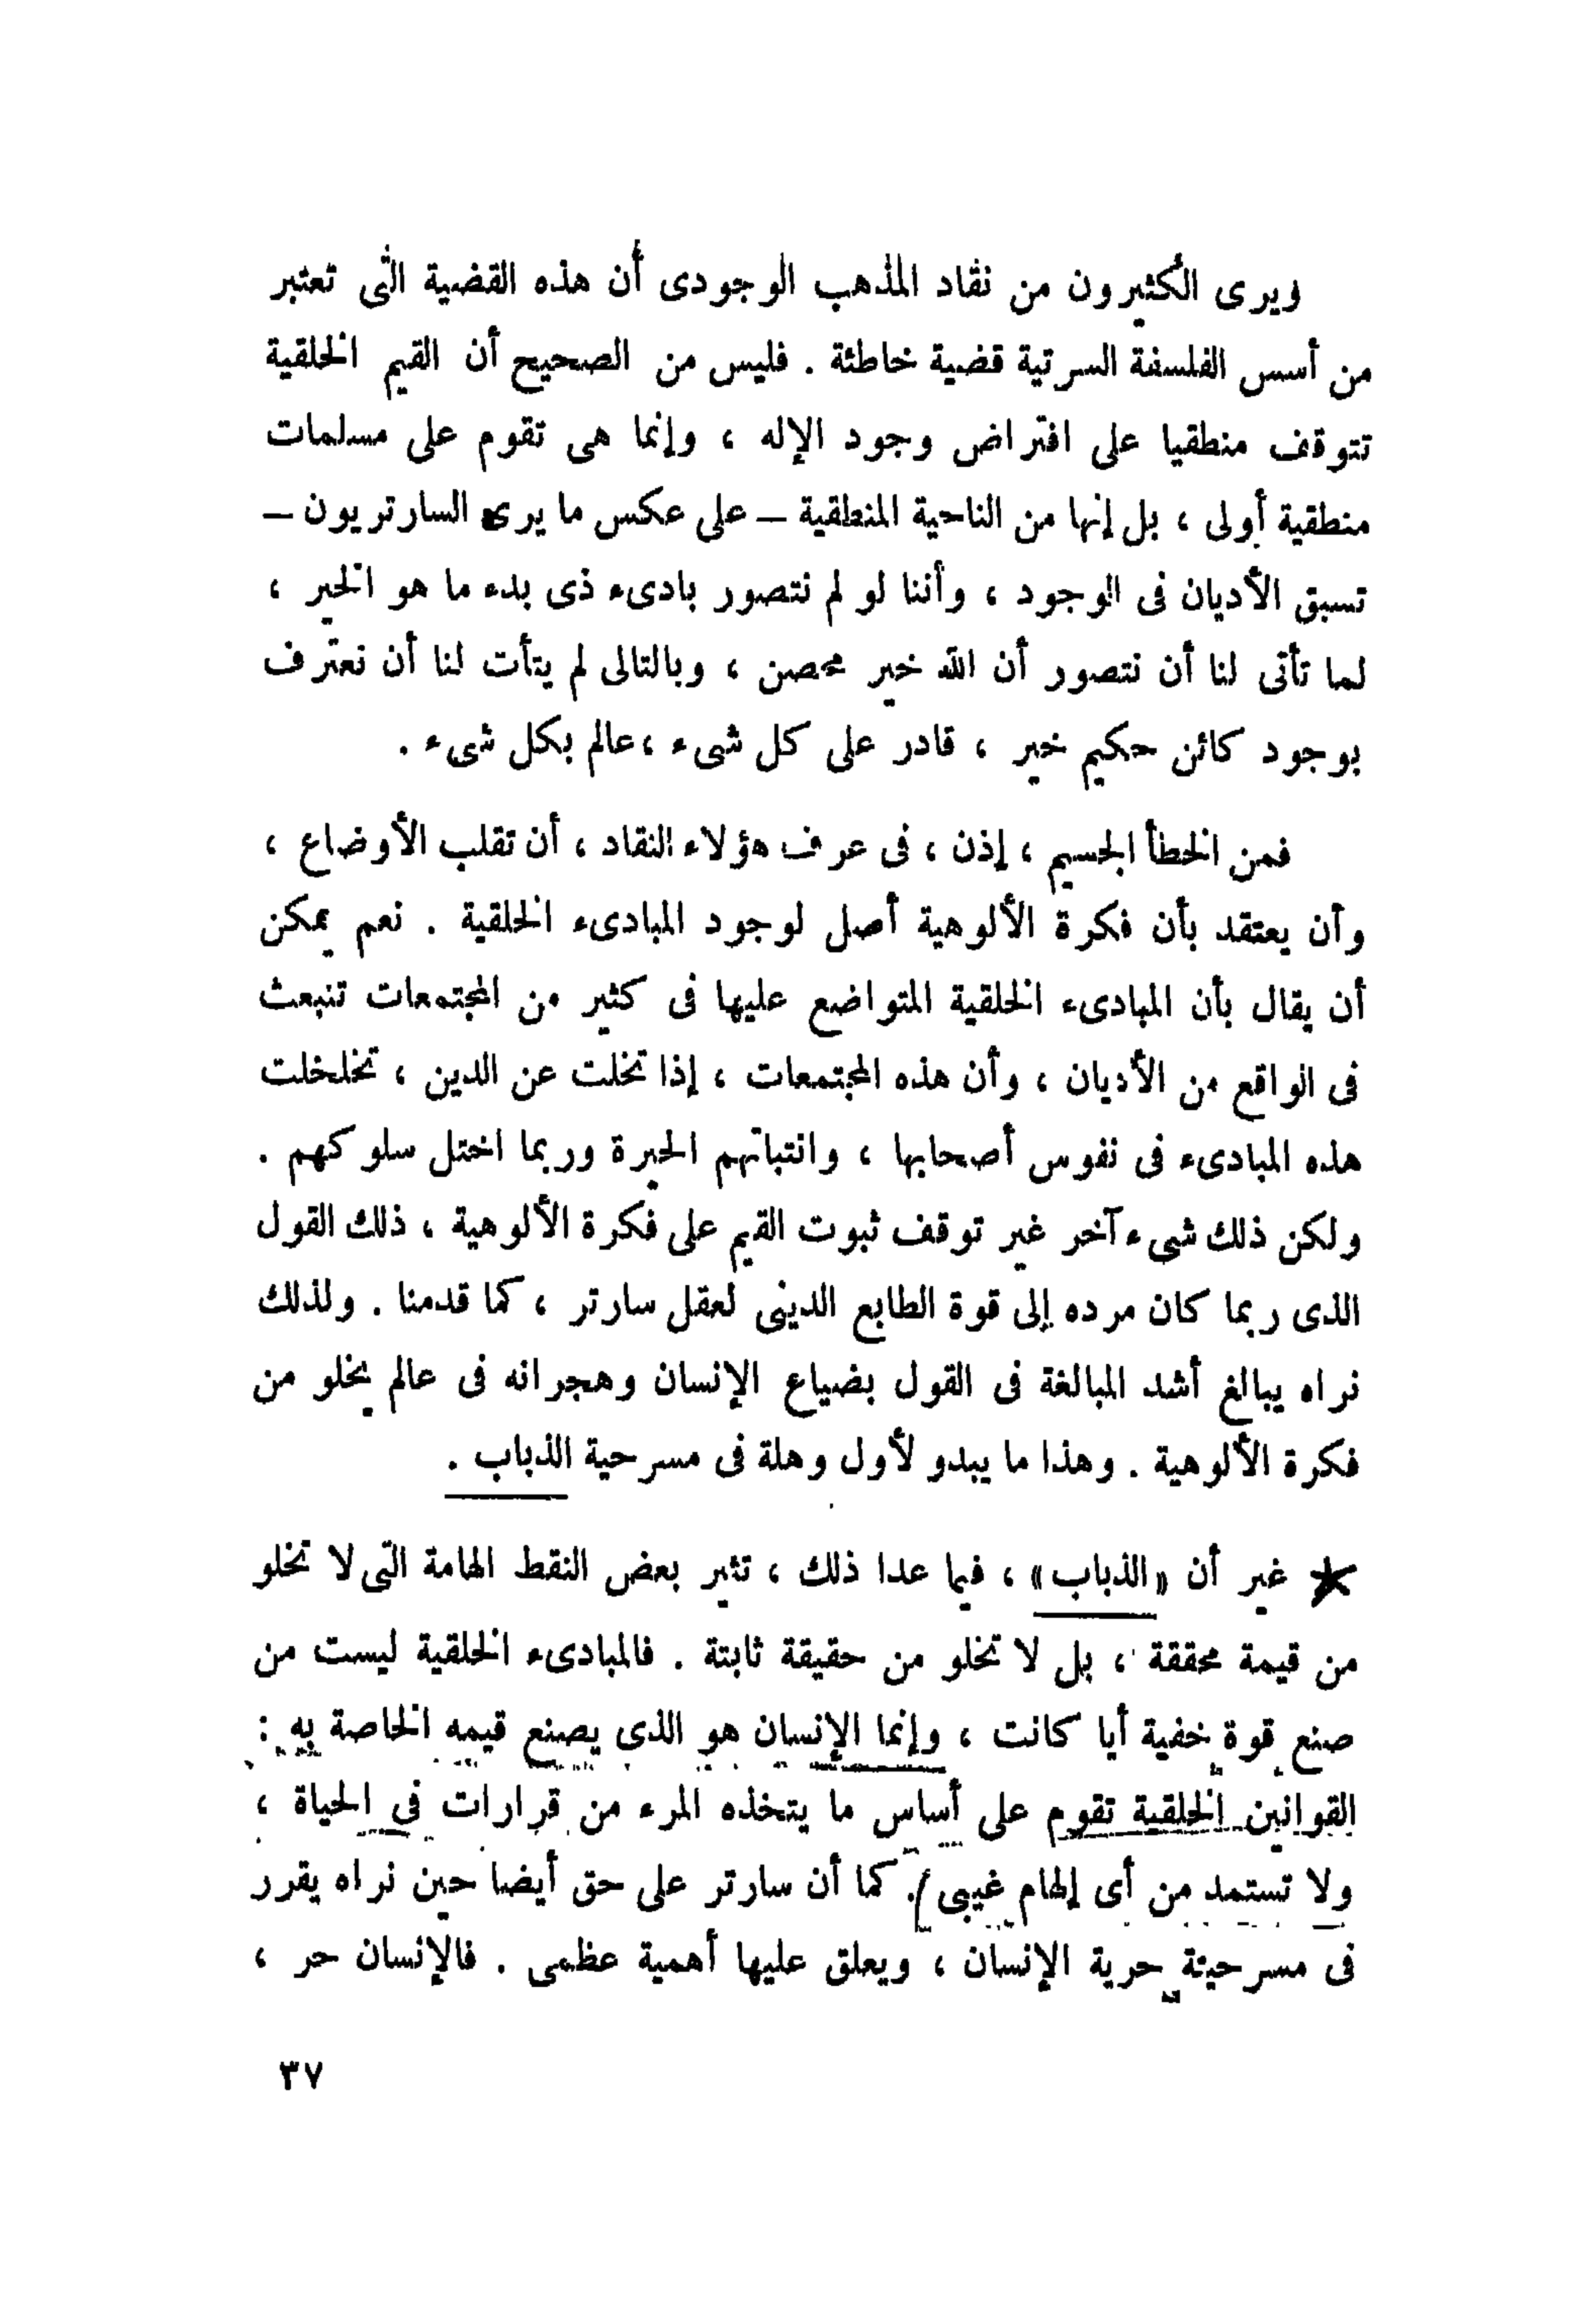 ويرى الكثيرون من نقاد المذهب الوجودى أن هذه القضية التى تعتبر
من أسس الفلسفة السرتية قضية خاطئة . فليس من الصحيح أن القيم الخلقية
تتوقف منطقيا على افتراض وجود الإله ، وإنما هى تقوم على مسلمات
منطقية أولى ، بل إنها من الناحية المنطقية – على عكس ما يرى السارتريون –
تسبق الأديان فى الوجود ، وأننا لو لم نتصور بادىء ذى بدء ما هو الخير ،
لما تأتى لنا أن نتصور أن الله خير محض ، وبالتالى لم يتأت لنا أن نعترف
بوجود كائن حكيم خير ، قادر على كل شىء ، عالم بكل شىء .
فمن الخطأ الجسيم ، إذن ، فى عرف هؤلاء النقاد ، أن تقلب الأوضاع ،
وأن يعتقد بأن فكرة الألوهية أصل لوجود المبادىء الخلقية . نعم يمكن
أن يقال بأن المبادىء الخلقية المتواضع عليها فى كثير من المجتمعات تنبعث
فى الواقع من الأديان ، وأن هذه المجتمعات ، إذا تخلت عن الدين ، تخلخلت
هذه المبادىء فى نفوس أصحابها ، وانتباتهم الحيرة وربما اختل سلوكهم .
ولكن ذلك شىء آخر غير توقف ثبوت القيم على فكرة الألوهية ، ذلك القول
الذى ربما كان مرده إلى قوة الطابع الدينى لعقل سارتر ، كما قدمنا . ولذلك
نراه يبالغ أشد المبالغة فى القول بضياع الإنسان وهجرانه فى عالم يخلو من
فكرة الألوهية . وهذا ما يبدو لأول وهلة فى مسرحية الذباب .
* غير أن «الذباب» ، فيما عدا ذلك ، تثير بعض النقط الهامة التى لا تخلو
من قيمة محققة ، بل لا تخلو من حقيقة ثابتة . فالمبادىء الخلقية ليست من
صنع قوة خفية أيا كانت ، وإنما الإنسان هو الذى يصنع قيمه الخاصة به :
القوانين الخلقية تقوم على أساس ما يتخذه المرء من قرارات فى الحياة ،
ولا تستمد من أى إلهام غيبى /. كما أن سارتر على حق أيضا حين نراه يقرر
فى مسرحيته حرية الإنسان ، ويعلق عليها أهمية عظمى . فالإنسان حر ،
٣٧